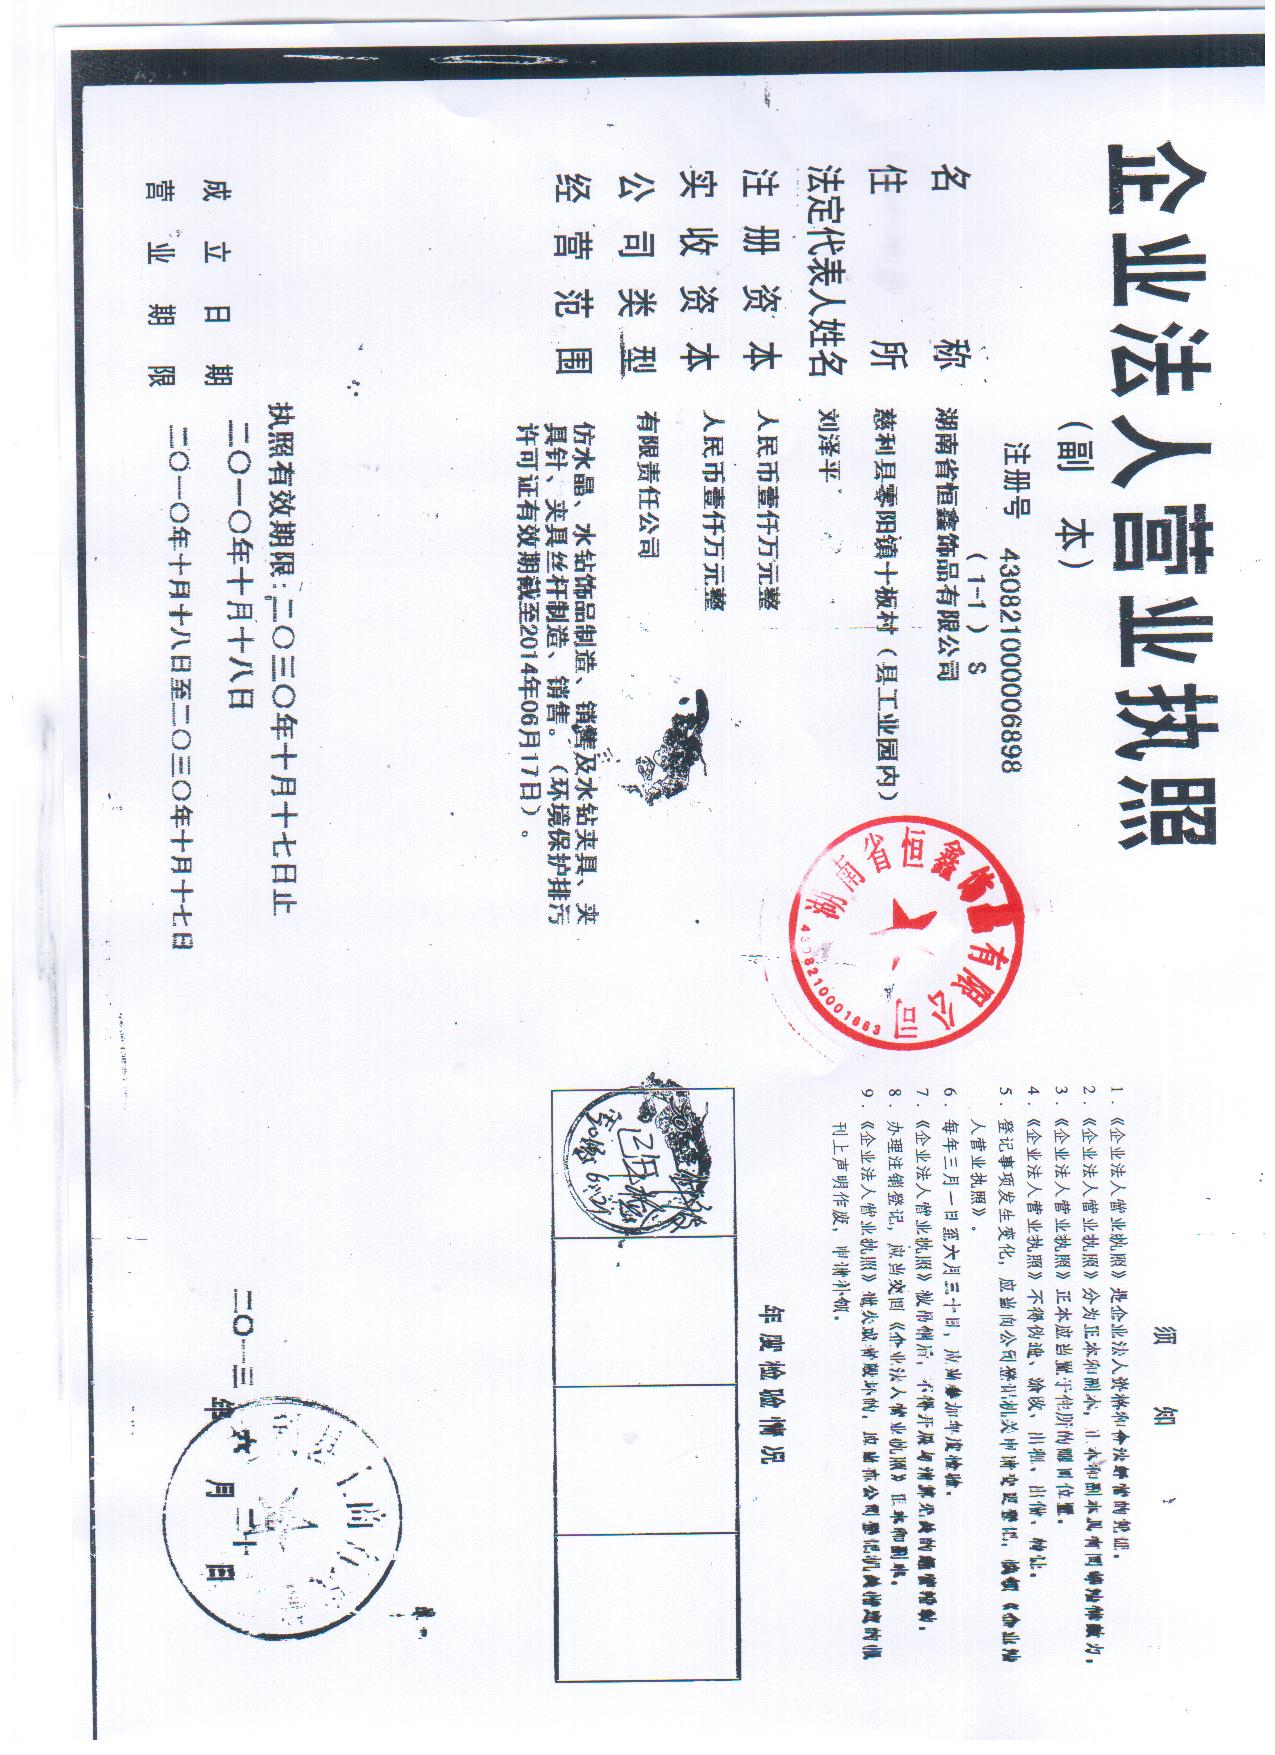 企业法人营业执照
（副 本）
注册号 430821000006898
（1-1）S
名称 湖南省恒鑫饰品有限公司
住所 慈利县零阳镇十板村（县工业园内）
法定代表人姓名 刘泽平
注册资本 人民币壹仟万元整
实收资本 人民币壹仟万元整
公司类型 有限责任公司
经营范围 仿水晶、水钻饰品制造、销售及水钻夹具、夹
具针、夹具丝杆制造、销售。（环境保护排污
许可证有效期截至2014年06月17日）。
执照有效期限：二〇三〇年十月十七日止
成立日期 二〇一〇年十月十八日
营业期限 二〇一〇年十月十八日至二〇三〇年十月十七日
湖南省恒鑫饰品有限公司
须 知
1．《企业法人营业执照》是企业法人资格和合法经营的凭证。
2．《企业法人营业执照》分为正本和副本，正本和副本具有同等法律效力。
3．《企业法人营业执照》正本应当置于住所的醒目位置。
4．《企业法人营业执照》不得伪造、涂改、出租、出借、转让。
5．登记事项发生变化，应当向公司登记机关申请变更登记，换领《企业法
人营业执照》。
6．每年三月一日至六月三十日，应当参加年度检验。
7．《企业法人营业执照》被吊销后，不得开展与清算无关的经营活动。
8．办理注销登记，应当交回《企业法人营业执照》正本和副本。
9．《企业法人营业执照》遗失或者毁坏的，应当在公司登记机关指定的报
刊上声明作废，申请补领。
年度检验情况
年六月二十日